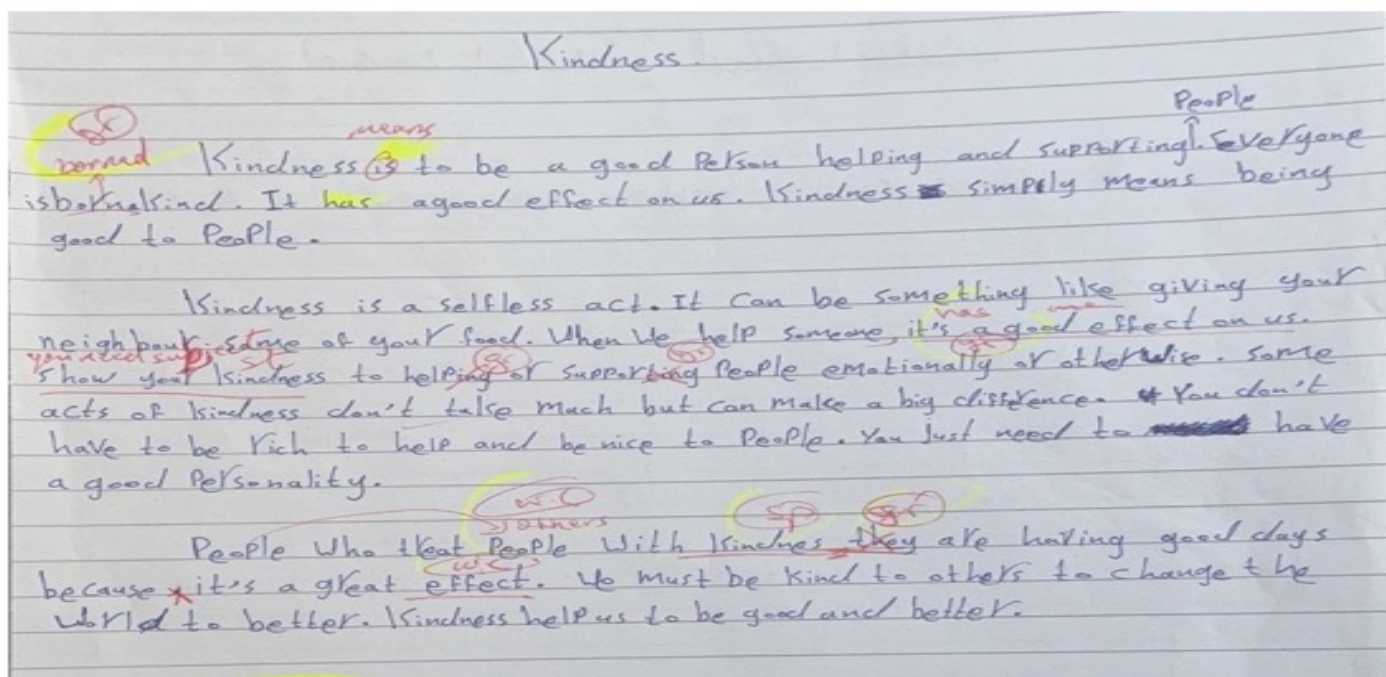 Kindness.
People
gr means
Kindness is to be a good Person helping and supporting. Everyone
isborn kind. It has agood effect on us. Kindness simply means being
good to People.
Kindness is a selfless act. It Can be something like giving your
has
neighbour some of your food. When We help someone, it's a good effect on us.
you need gr gr gr
show your Kindness to helping or supporting People emotionally or otherwise. some
acts of kindness don't take much but can make a big difference. You don't
have to be rich to help and be nice to People. You Just need to have
a good Personality.
w.c sp gr
others
People Who treat People With kindnes they are having good days
w.c
because it's a great effect. We must be Kind to others to change the
world to better. Kindness help us to be good and better.